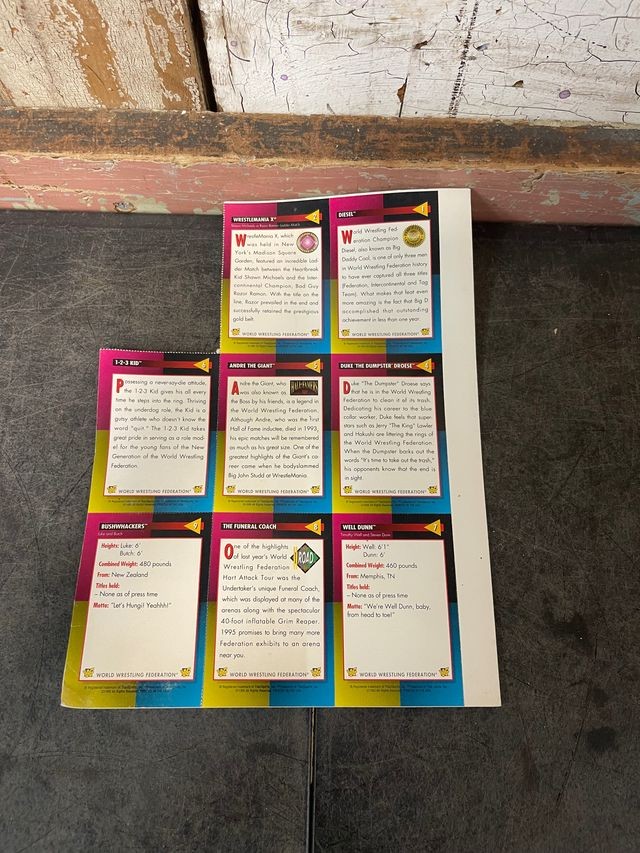 WRESTLEMANIA X™
2
WrestleMania X, which
was held in New
York's Madison Square
Garden, featured an incredible Lad-
der Match between the Heartbreak
Kid Shawn Michaels and the Inter-
continental Champion, Bad Guy
Razor Ramon. With the title on the
line, Razor prevailed in the end and
successfully retained the prestigious
gold belt.
WORLD WRESTLING FEDERATION®
DIESEL™
1
World Wrestling Fed-
eration Champion
Diesel, also known as Big
Daddy Cool, is one of only three men
in World Wrestling Federation history
to have ever captured all three titles
(Federation, Intercontinental and Tag
Team). What makes that feat even
more amazing is the fact that Big D
accomplished that outstanding
achievement in less than one year.
WORLD WRESTLING FEDERATION®
1-2-3 KID™
6
Possessing a never-say-die attitude,
the 1-2-3 Kid gives his all every
time he steps into the ring. Thriving
on the underdog role, the Kid is a
gutsy athlete who doesn't know the
word "quit." The 1-2-3 Kid takes
great pride in serving as a role mod-
el for the young fans of the New
Generation of the World Wrestling
Federation.
WORLD WRESTLING FEDERATION®
ANDRE THE GIANT™
5
Andre the Giant, who
was also known as
the Boss by his friends, is a legend in
the World Wrestling Federation.
Although Andre, who was the first
Hall of Fame inductee, died in 1993,
his epic matches will be remembered
as much as his great size. One of the
greatest highlights of the Giant's ca-
reer came when he bodyslammed
Big John Studd at WrestleMania.
WORLD WRESTLING FEDERATION®
DUKE "THE DUMPSTER" DROESE™
4
Duke "The Dumpster" Droese says
that he is in the World Wrestling
Federation to clean it of all its trash.
Dedicating his career to the blue
collar worker, Duke feels that super-
stars such as Jerry "The King" Lawler
and Hakushi are littering the rings of
the World Wrestling Federation.
When the Dumpster barks out the
words "It's time to take out the trash,"
his opponents know that the end is
in sight.
WORLD WRESTLING FEDERATION®
BUSHWHACKERS™
9
Luke and Butch
Heights: Luke: 6'
Butch: 6'
Combined Weight: 480 pounds
From: New Zealand
Titles held:
– None as of press time
Motto: "Let's Hungi! Yeahhh!"
WORLD WRESTLING FEDERATION®
THE FUNERAL COACH
8
One of the highlights
of last year's World
Wrestling Federation
Hart Attack Tour was the
Undertaker's unique Funeral Coach,
which was displayed at many of the
arenas along with the spectacular
40-foot inflatable Grim Reaper.
1995 promises to bring many more
Federation exhibits to an arena
near you.
ROAD
WORLD WRESTLING FEDERATION®
WELL DUNN™
7
Timothy Well and Steven Dunn
Heights: Well: 6'1"
Dunn: 6'
Combined Weight: 460 pounds
From: Memphis, TN
Titles held:
– None as of press time
Motto: "We're Well Dunn, baby,
from head to toe!"
WORLD WRESTLING FEDERATION®